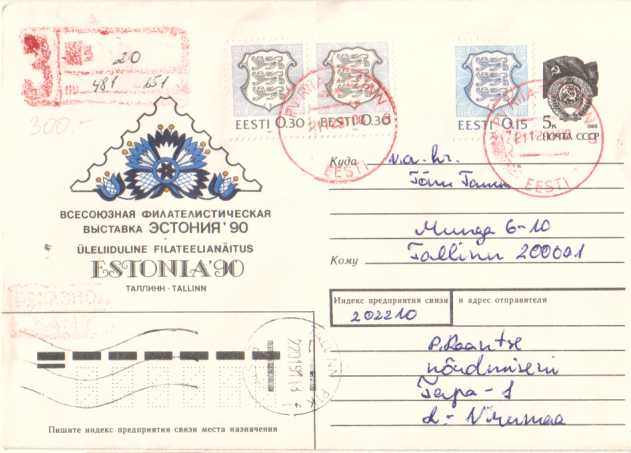 20
481 151
300-
EESTI 0.30
EESTI 0.30
EESTI 0.15
5к
ПОЧТА СССР
TALLINN
EESTI
EESTI
ВСЕСОЮЗНАЯ ФИЛАТЕЛИСТИЧЕСКАЯ
ВЫСТАВКА ЭСТОНИЯ'90
ÜLELIIDULINE FILATEELIANÄITUS
ESTONIA'90
ТАЛЛИНН · TALLINN
Куда v.a. hr.
Tõnu
Munga 6-10
Кому Tallinn 200001
Индекс предприятия связи и адрес отправителя
202210
P. Laantse
nõudmiseni
Tapa-1
L-Virumaa
Пишите индекс предприятия связи места назначения